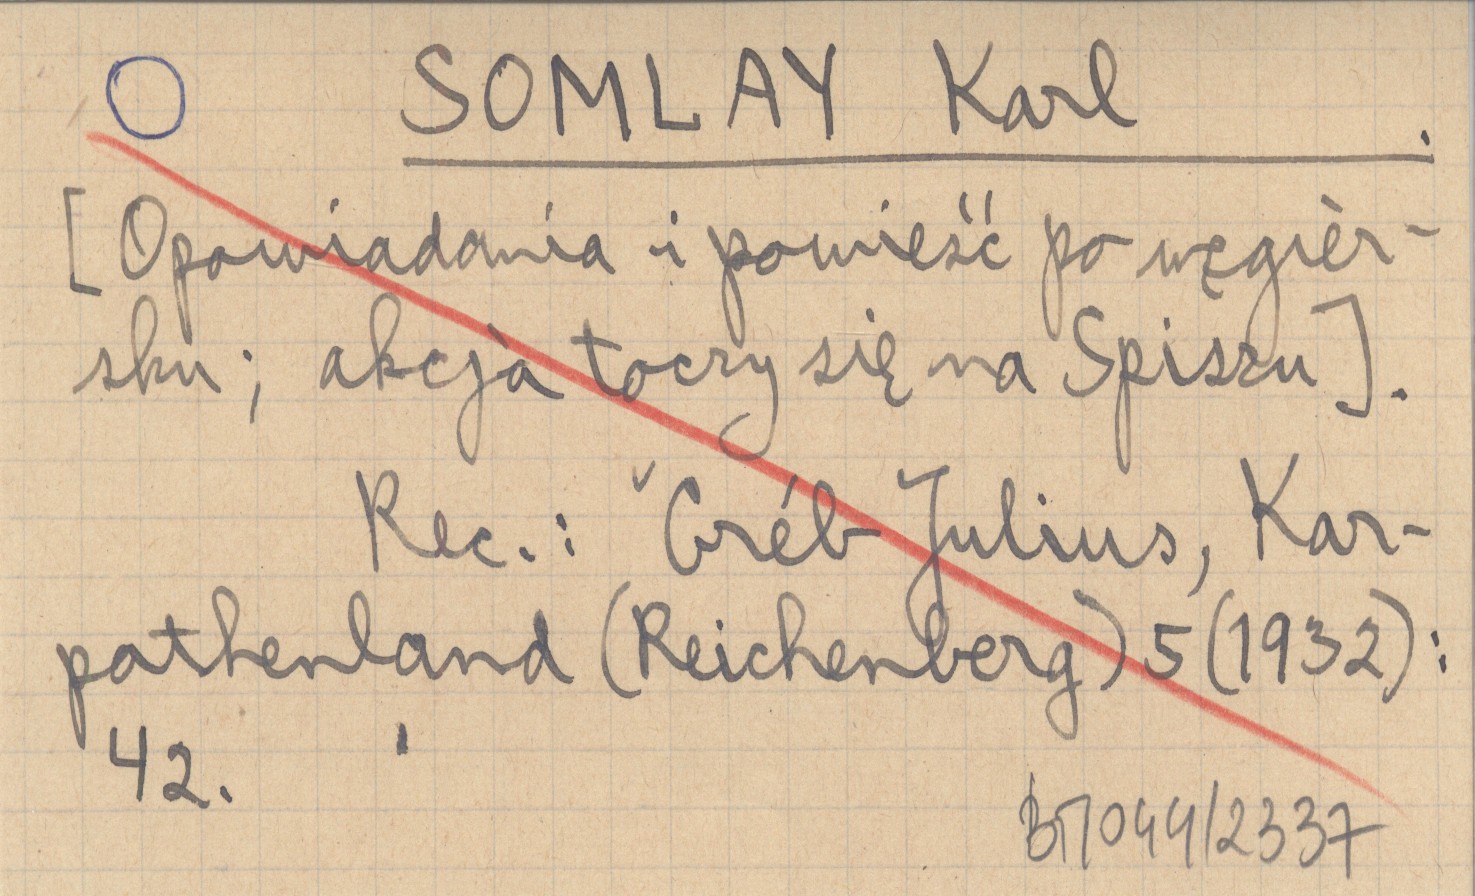 SOMLAY Karl
[Opowiadania i powieść po węgier-
sku; akcja toczy się na Spiszu].
Rec.: Gréb Julius, Kar-
pathenland (Reichenberg) 5 (1932):
42.
BT/044/2337